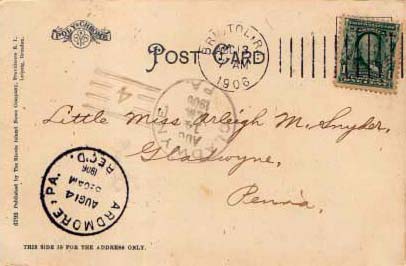 POLY-CHROME
POST CARD
BRISTOL, R.I.
1906
4
AUG
1906
PA
Little Miss Arleigh M. Snyder,
Gladwyne,
Penna.
ARDMORE, PA.
AUG 14
1906
REC'D.
Published by The Rhode Island News Company, Providence R. I.,
Leipzig, Dresden.
THIS SIDE IS FOR THE ADDRESS ONLY.